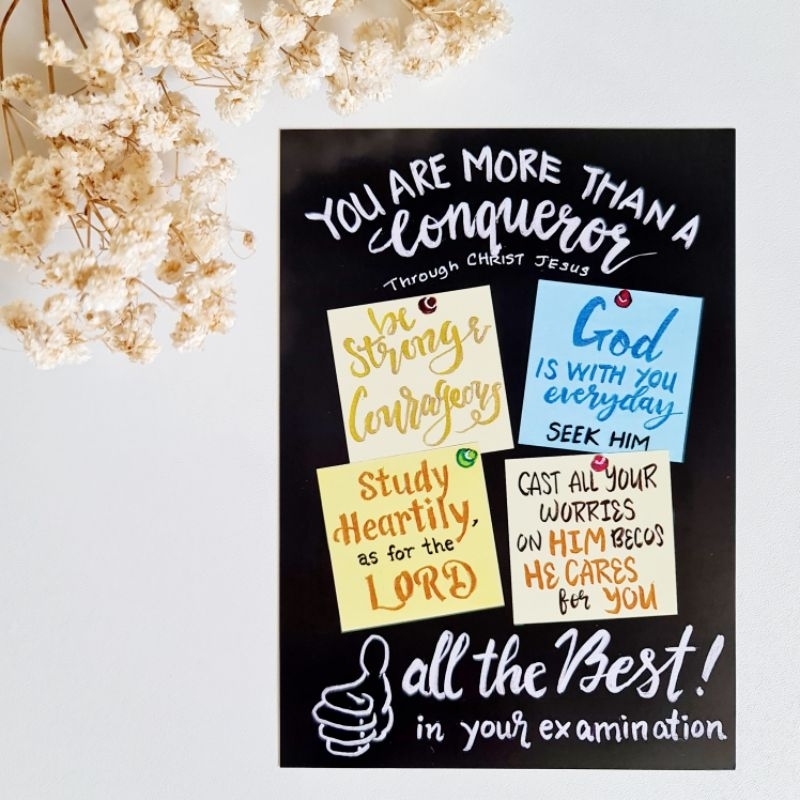 YOU ARE MORE THAN A
Conqueror
Through CHRIST JESUS
be
Strong &
Courageous
God
IS WITH YOU
everyday
SEEK HIM
Study
Heartily,
as for the
LORD
CAST ALL YOUR
WORRIES
ON HIM BECOS
HE CARES
for YOU
all the Best!
in your examination